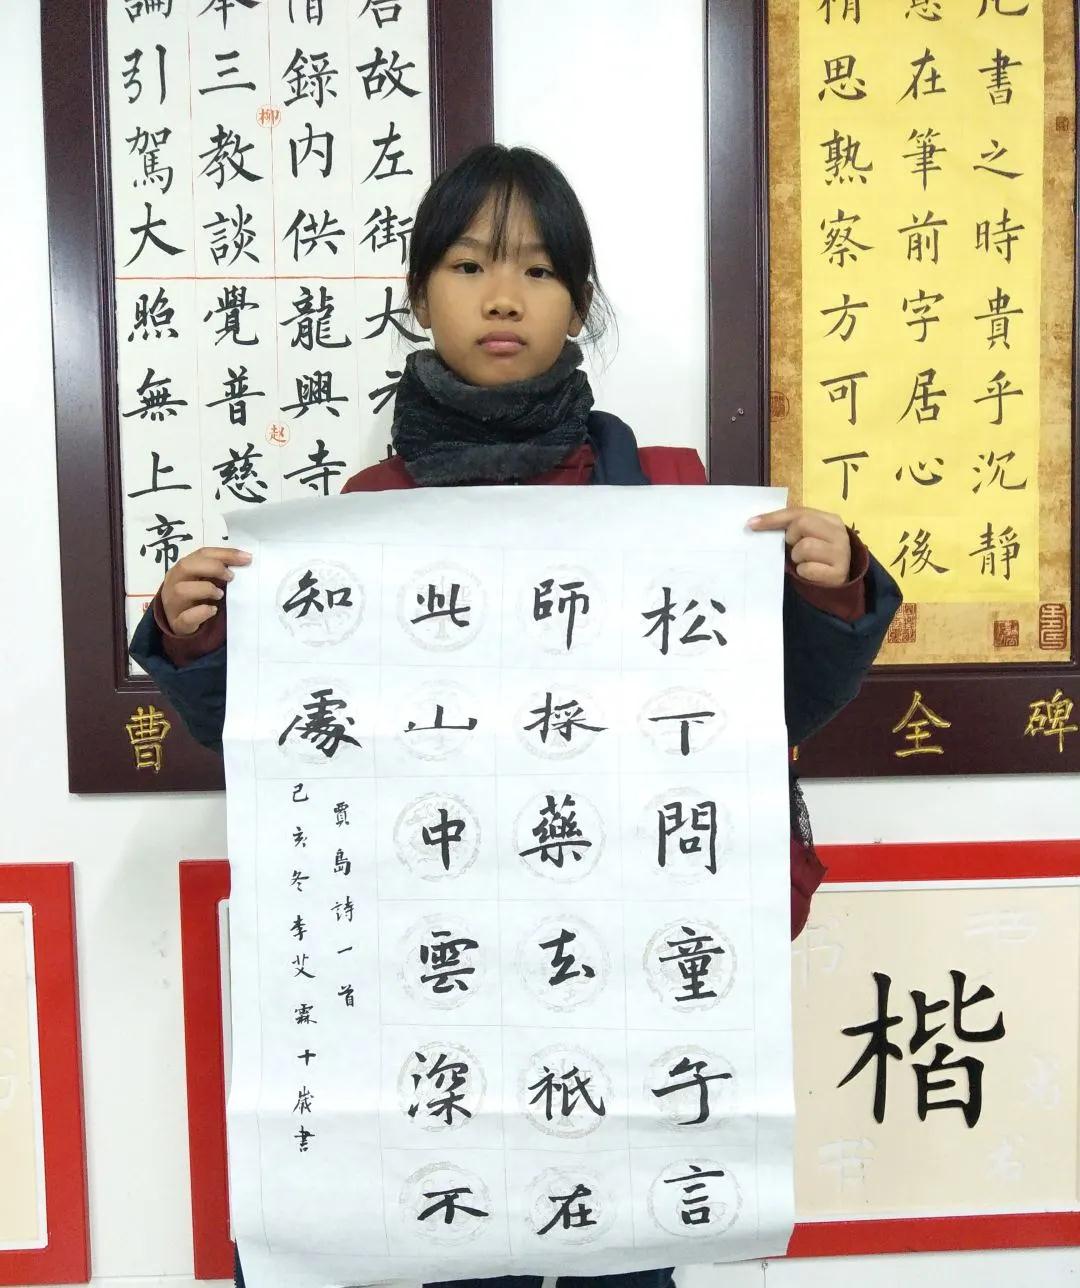 凡書之時貴乎沉靜
意在筆前字居心後
思熟察方可下
故左街大
錄内供龍興寺
三教談覺普慈
引駕大照無上帝
柳
赵
松下問童子言
師採藥去祇在
此山中雲深不
知處
賈島詩一首
己亥冬李艾霖十歲書
曹
全碑
楷